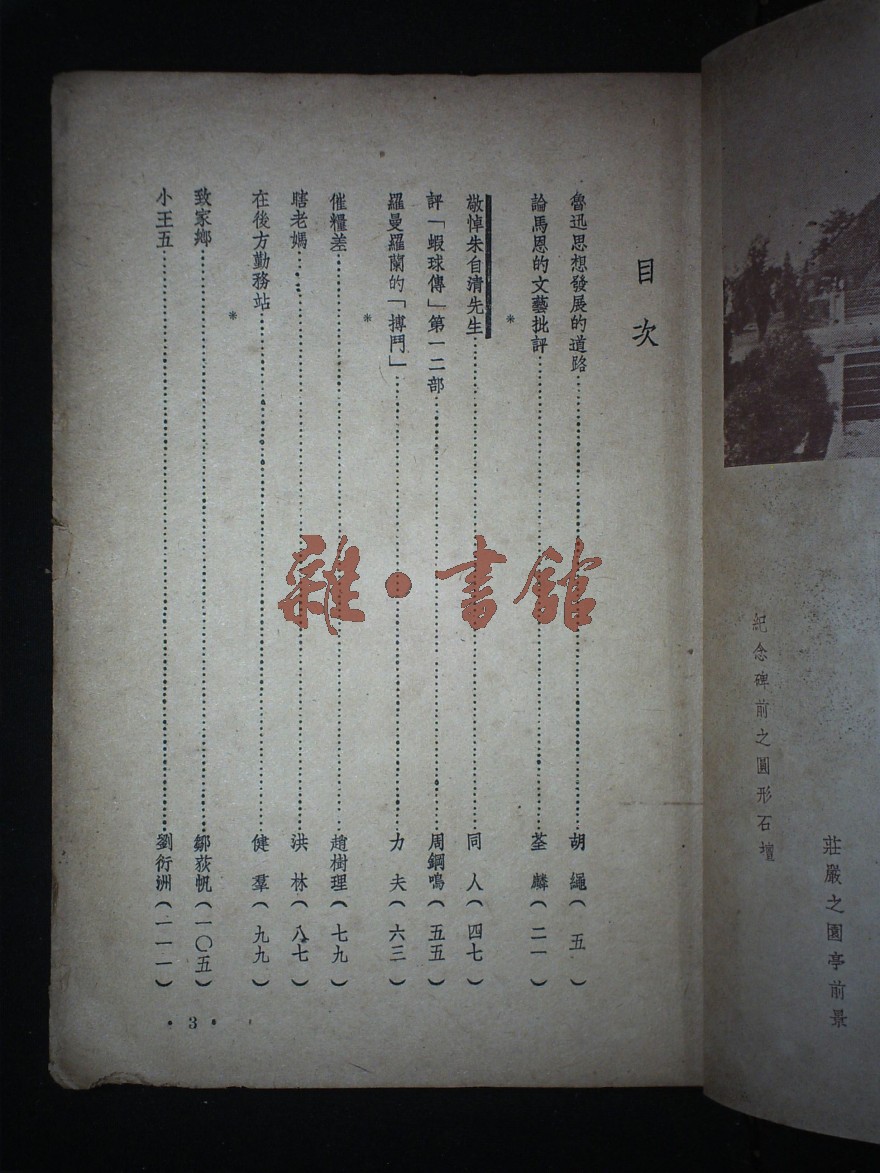 目次
魯迅思想發展的道路……胡繩（五）
論馬恩的文藝批評……荃麟（二一）
*
敬悼朱自清先生……同人（四七）
評「蝦球傳」第一二部……周鋼鳴（五五）
羅曼羅蘭的「搏鬥」……力夫（六三）
*
催糧差……趙樹理（七九）
瞎老媽……洪林（八七）
在後方勤務站……健羣（九九）
*
致家鄉……鄒荻帆（一〇五）
小王五……劉衍洲（一一一）
• 3 •
莊嚴之園亭前景
紀念碑前之圓形石壇
雜·書館